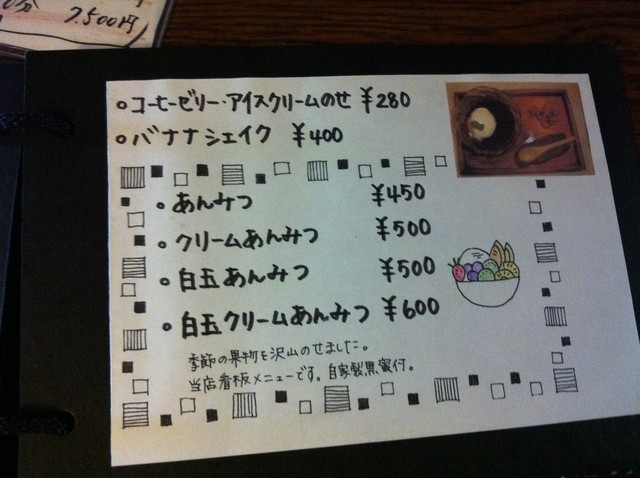 0分 7.500円
○コーヒーゼリー・アイスクリームのせ ¥280
○バナナシェイク ¥400
○あんみつ ¥450
○クリームあんみつ ¥500
○白玉あんみつ ¥500
○白玉クリームあんみつ ¥600
季節の果物を沢山のせました。
当店看板メニューです。自家製黒蜜付。